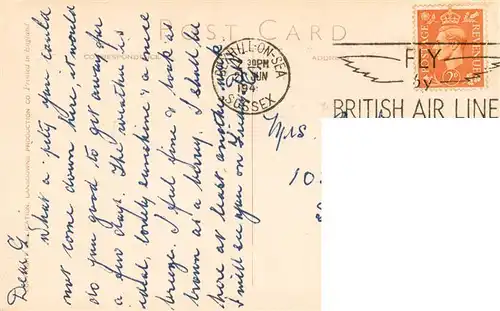 POST CARD
CORRESPONDENCE
Printed in England
BEXHILL-ON-SEA
30PM
2 JUN
194
SUSSEX
FLY
BY
BRITISH AIR LINE
POSTAGE
REVENUE
2D
Mrs.
10
Dear G.
What a pity you could
not come down here, it would
do you good to get away for
a few days. The weather is
ideal, lovely sunshine & a nice
breeze. I feel fine & look as
brown as a berry. I shall be
here at least another week
I will see you on